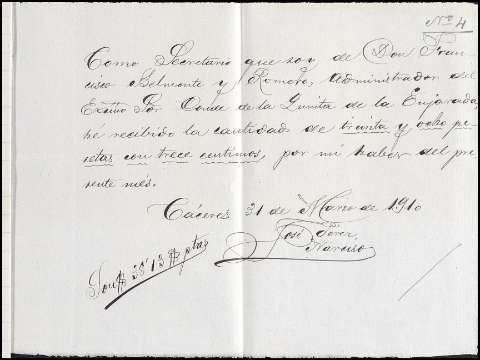 Nº 4
Como Secretario que soy de Don Fran-
cisco Belmonte y Romero, Administrador del
Excmo Sor Conde de la Quinta de la Enjarada,
hé recibido la cantidad de treinta y ocho pe-
setas con trece centimos, por mi haber del pre-
sente més.
Cáceres 31 de Marzo de 1910
José
Narciso
Son # 38'13 # ptas